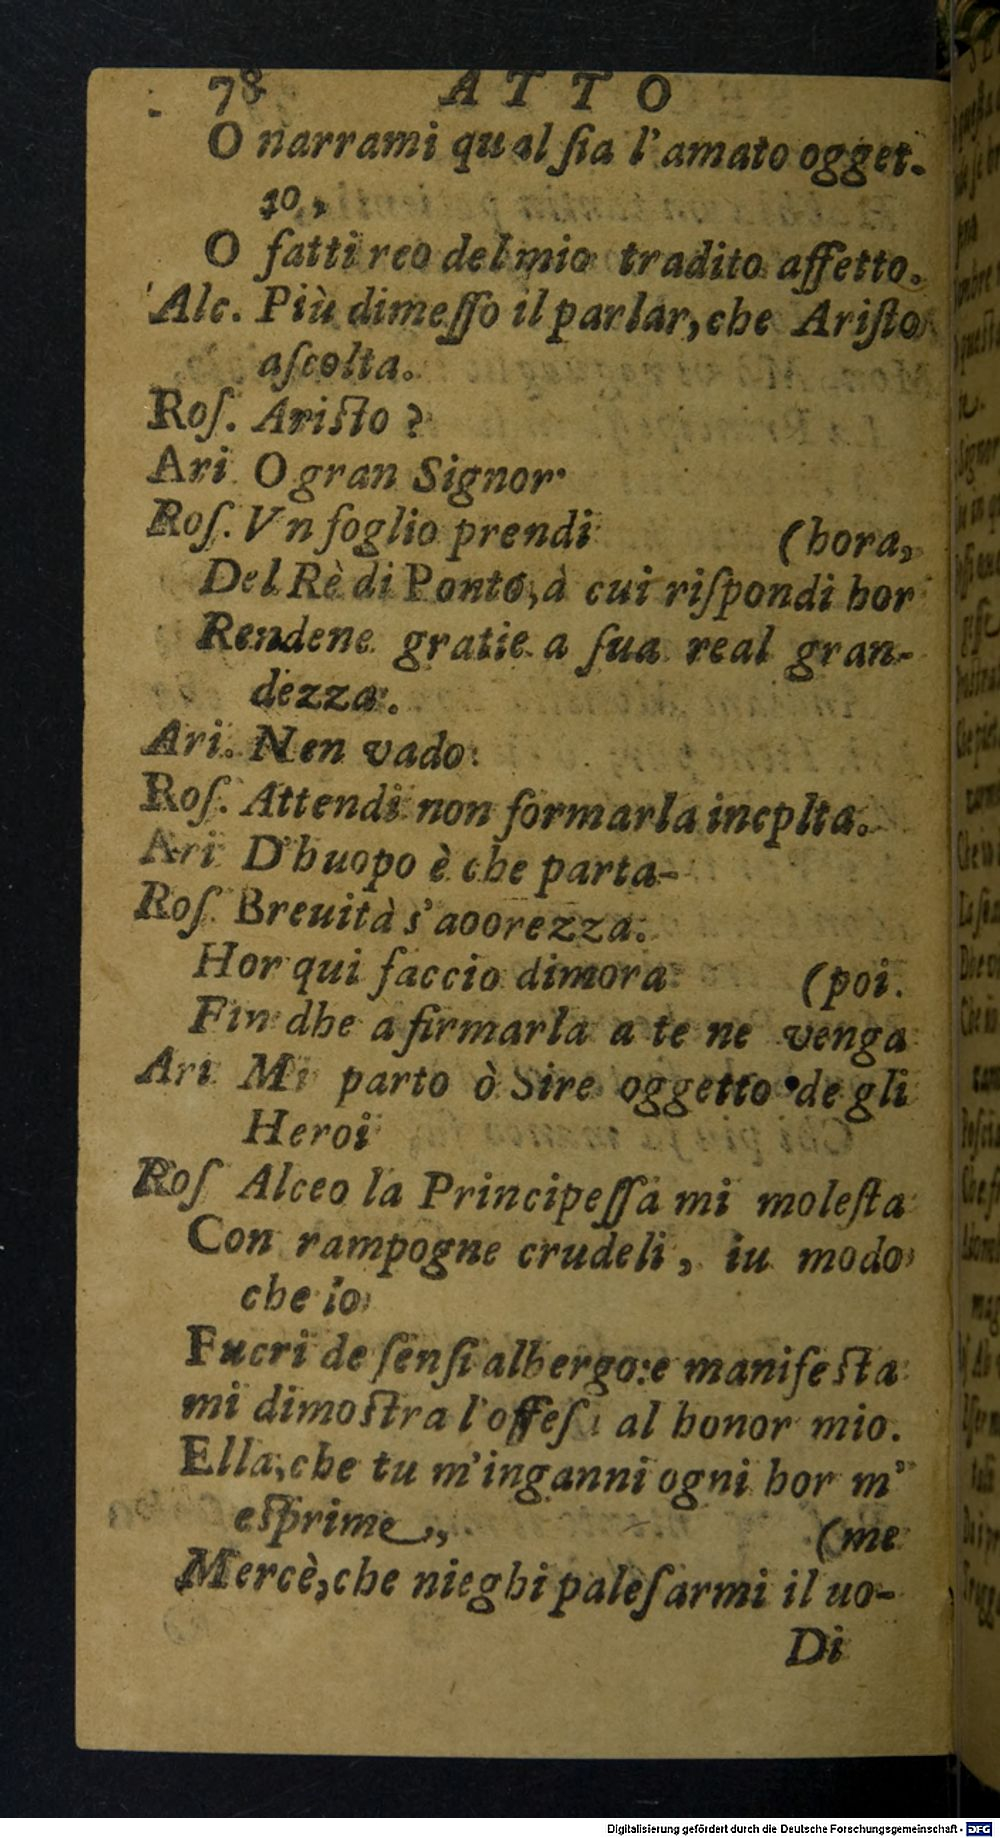 78 ATTO
O narrami qual ſia l'amato ogget-
to,
O fatti reo del mio tradito affetto.
Alc. Più dimeſſo il parlar, che Ariſto
aſcolta.
Roſ. Ariſto?
Ari. O gran Signor.
Roſ. Vn foglio prendi (hora,
Del Rè di Ponto, à cui riſpondi hor
Rendene gratie a ſua real gran-
dezza.
Ari. Nen vado.
Roſ. Attendi non formarla incplta.
Ari D'huopo è che parta-
Roſ. Breuità s'aoorezza.
Hor qui faccio dimora (poi.
Fin dhe a firmarla a te ne venga
Ari Mi parto ò Sire oggetto de gli
Heroi
Roſ Alceo la Principeſſa mi moleſta
Con rampogne crudeli, iu modo
che io
Fucri de ſenſi albergo: e manifeſta
mi dimoſtra l'offeſa al honor mio.
Ella, che tu m'inganni ogni hor m'
eſprime, (me
Mercè, che nieghi paleſarmi il uo-
Di
Digitalisierung gefördert durch die Deutsche Forschungsgemeinschaft - DFG